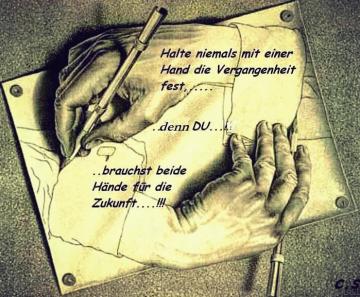 Halte niemals mit einer
Hand die Vergangenheit
fest,......
..denn DU...!!
..brauchst beide
Hände für die
Zukunft....!!!
C.S